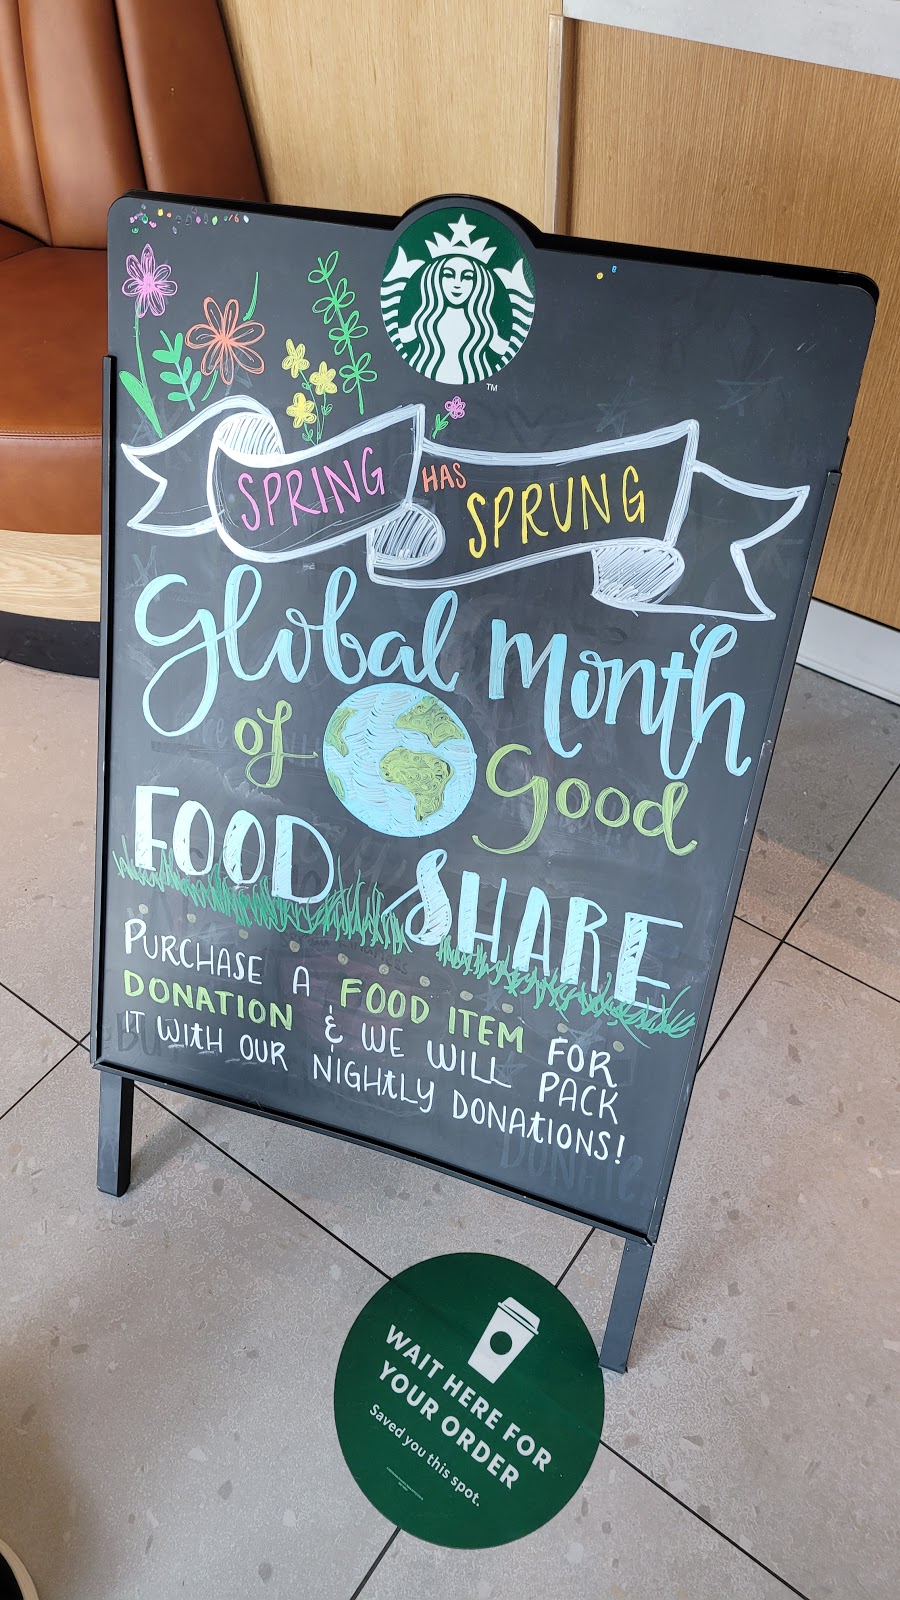 TM
SPRING HAS SPRUNG
Global Month
of Good
FOOD SHARE
PURCHASE A FOOD ITEM FOR
DONATION & WE WILL PACK
IT WITH OUR NIGHTLY DONATIONS!
WAIT HERE FOR
YOUR ORDER
Saved you this spot.